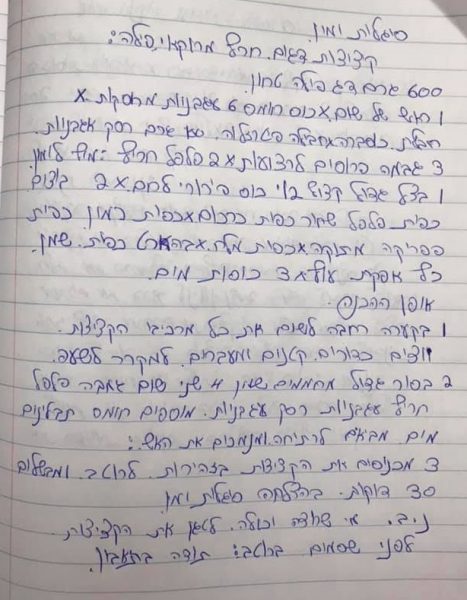 סיגלית ימין.
קציצות דגים. חריף מרוקאי, פלה:
600 גרם דג פילה טחון.
1 ראש של שום. x כוס חומוס 6 עגבניות מרוסקות x
חבילת. כוסברה. חבילה פטרוזליה. 100 גרם רסק עגבניות.
3 גמבה פרוסים לרצועות x 2 פלפל חריף :מיץ לימון
1 בצל גדול קצוץ 1/2 כוס פירורי לחם. x 2 ביצים
כפית. פלפל שחור כפית כורכום. x כפית כמון. כפית
פפריקה מתוקה. x כפית מלח. כפית. שמן.
כף אבקת. עוף x 3 כוסות מים.
אופן ההכנה.
1 בקערה רחבה לשים את כל מרכיבי הקציצות.
יוצרים כדורים. קטנים ומעבירים. למקרר לשעה.
2 בסיר גדול מחממים. שמן 4 שני שום גמבה פלפל
חריף עגבניות רסק עגבניות. מוספים חומוס תבלינים
מים מביאים לרתיחה. ומנמכים את האש.:
3 מכניסים את הקציצות בזהירות. לרוטב. ומבשלים
30 דקות. בהצלחה סיגלית ימין.
נ.ב. מי שרוצה יכולה. לטגן את הקציצות
לפני ששמים ברוטב: תודה בתאבון.